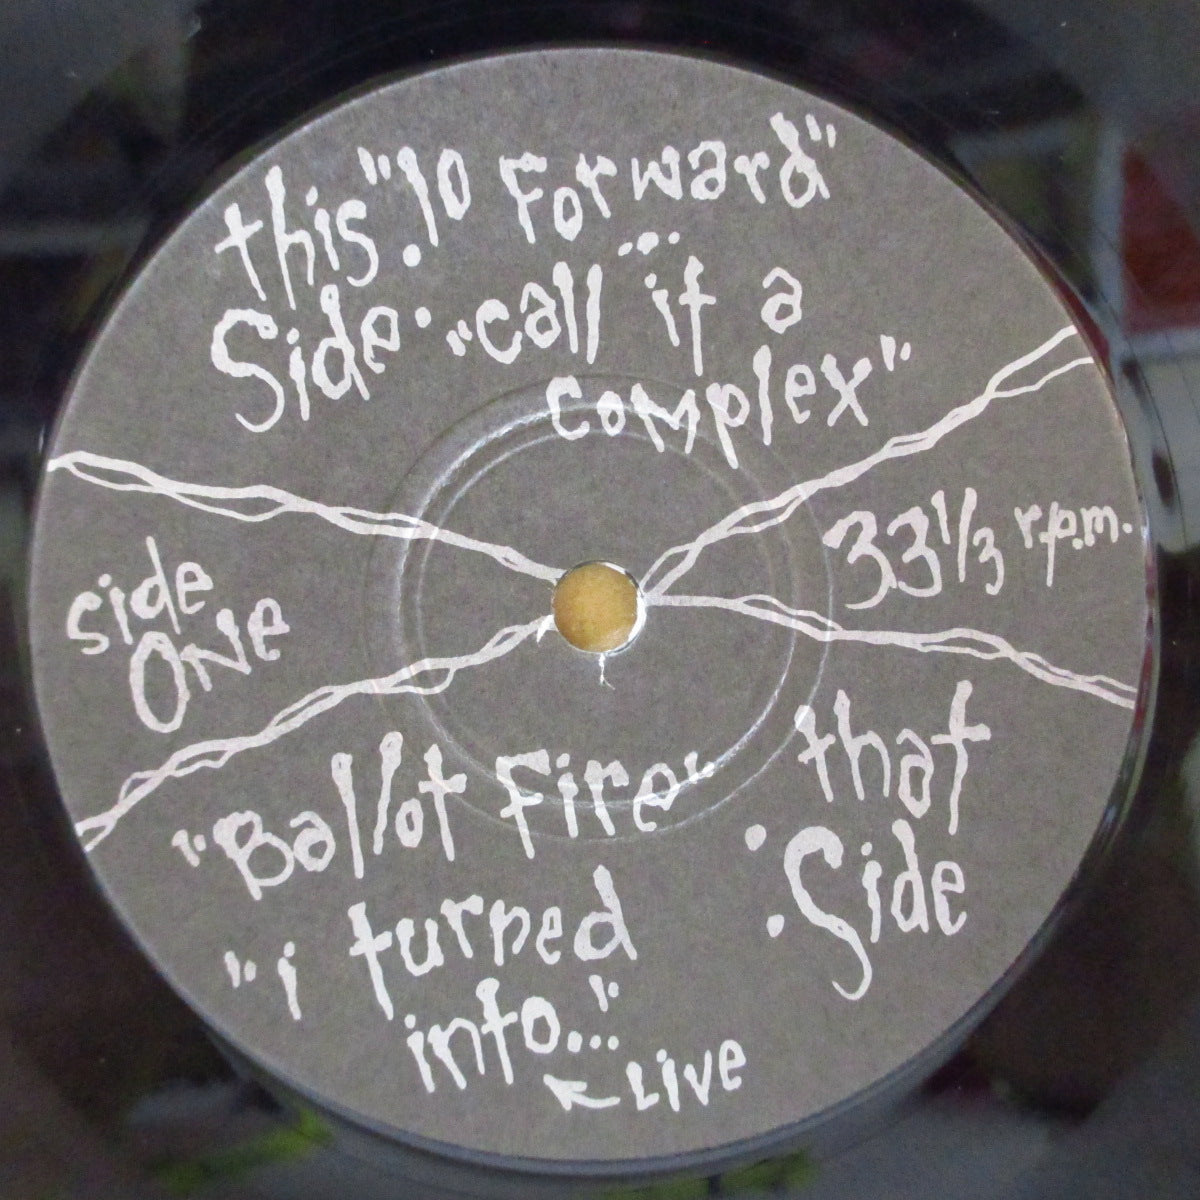 this "10 Forward"
Side: "call it a
complex"
33 1/3 r.p.m.
side
ONE
"Ballot Fire"
"i turned
into..."
LIVE
that
Side